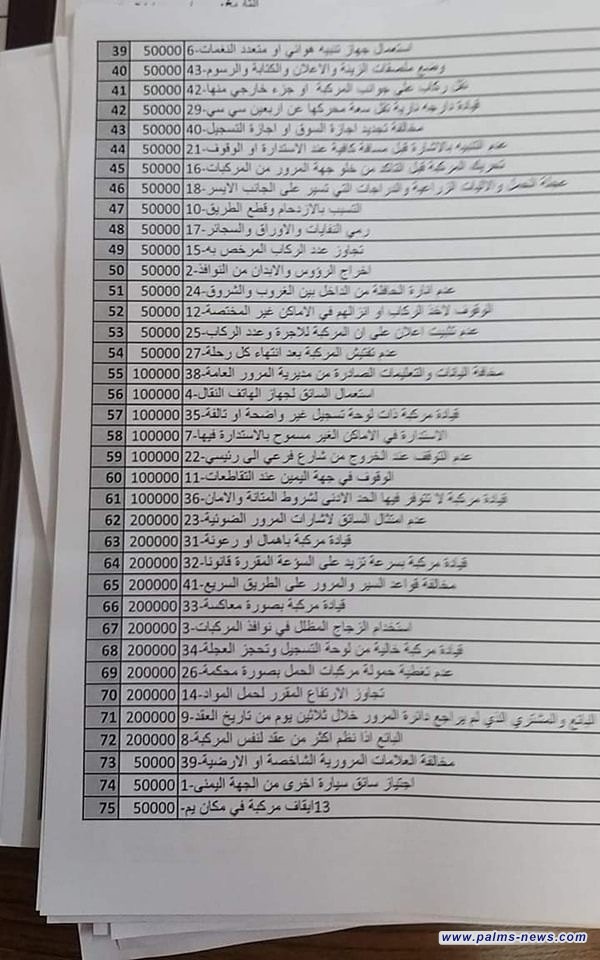 التاريخ
39 50000 6-استعمال جهاز تنبيه هوائي او متعدد النغمات
40 50000 43-وضع ملصقات الزينة والاعلان والكتابة والرسوم
41 50000 42-نقل ركاب على جوانب المركبة او جزء خارجي منها
42 50000 29-قيادة دارجه نارية تقل سعة محركها عن اربعين سي سي
43 50000 40-مخالفة تجديد اجازة السوق او اجازة التسجيل
44 50000 21-عدم التنبيه بالاشارة قبل مسافة كافية عند الاستدارة او الوقوف
45 50000 16-تحريك المركبة قبل التاكد من خلو جهة المرور من المركبات
46 50000 18-عجلة الحمل والاليات الزراعية والدراجات التي تسير على الجانب الايسر
47 50000 10-التسبب بالازدحام وقطع الطريق
48 50000 17-رمي النفايات والاوراق والسجائر
49 50000 15-تجاوز عدد الركاب المرخص به
50 50000 2-اخراج الرؤوس والابدان من النوافذ
51 50000 24-عدم انارة الحافلة من الداخل بين الغروب والشروق
52 50000 12-الوقوف لاخذ الركاب او انزالهم في الاماكن غير المختصة
53 50000 25-عدم تثبيت اعلان على ان المركبة للاجرة وعدد الركاب
54 50000 27-عدم تفتيش المركبة بعد انتهاء كل رحلة
55 100000 38-مخافة البانات والتعليمات الصادرة من مديرية المرور العامة
56 100000 4-استعمال السائق لجهاز الهاتف النقال
57 100000 35-قيادة مركبة ذات لوحة تسجيل غير واضحة او تالفة
58 100000 7-الاستدارة في الاماكن الغير مسموح بالاستدارة فيها
59 100000 22-عدم التوقف عند الخروج من شارع فرعي الى رئيسي
60 100000 11-الوقوف في جهة اليمين عند التقاطعات
61 100000 36-قيادة مركبة لا تتوفر فيها الحد الادنى لشروط المتانة والامان
62 200000 23-عدم امتثال السائق لاشارات المرور الضوئية
63 200000 31-قيادة مركبة باهمال او رعونة
64 200000 32-قيادة مركبة بسرعة تزيد على السرعة المقررة قانونا
65 200000 41-مخالفة قواعد السير والمرور على الطريق السريع
66 200000 33-قيادة مركبة بصورة معاكسة
67 200000 3-استخدام الزجاج المظلل في نوافذ المركبات
68 200000 34-قيادة مركبة خالية من لوحة التسجيل وتحجز العجلة
69 200000 26-عدم تغطية حمولة مركبات الحمل بصورة محكمة
70 200000 14-تجاوز الارتفاع المقرر لحمل المواد
71 200000 9-البائع والمشتري الذي لم يراجع دائرة المرور خلال ثلاثين يوم من تاريخ العقد
72 200000 8-البائع اذا نظم اكثر من عقد لنفس المركبة
73 50000 39-مخالفة العلامات المرورية الشاخصة او الارضية
74 50000 1-اجتياز سائق سيارة اخرى من الجهة اليمنى
75 50000 13ايقاف مركبة في مكان يم-
www.palms-news.com